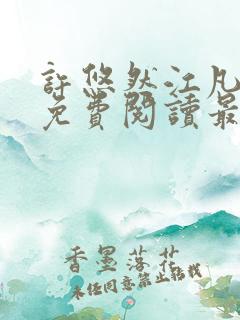 許悠然江凡
免費閱讀最
香墨落花
未经同意禁止转载